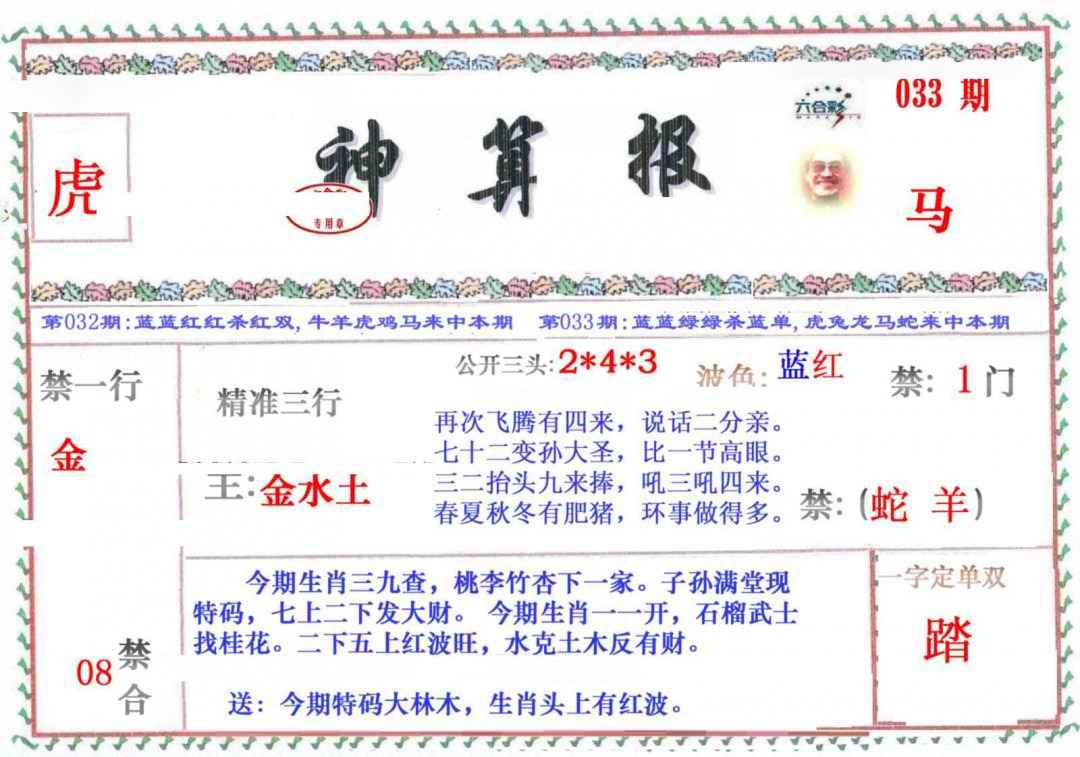 六合彩
033 期
神算报
虎
专用章
马
第032期:蓝蓝红红杀红双,牛羊虎鸡马来中本期 第033期:蓝蓝绿绿杀蓝单,虎兔龙马蛇来中本期
禁一行
金
精准三行
王:金水土
公开三头:2*4*3
波色:蓝红
禁: 1 门
再次飞腾有四来，说话二分亲。
七十二变孙大圣，比一节高眼。
三二抬头九来捧，吼三吼四来。
春夏秋冬有肥猪，环事做得多。
禁:(蛇 羊)
今期生肖三九查，桃李竹杏下一家。子孙满堂现
特码，七上二下发大财。 今期生肖一一开，石榴武士
找桂花。二下五上红波旺，水克土木反有财。
送：今期特码大林木，生肖头上有红波。
08
禁合
一字定单双
踏